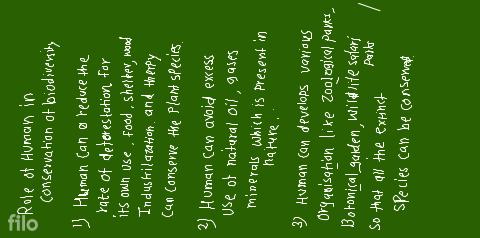 Role of Humam in
conservation of biodiversity
1) Human can reduce the
rate of deforestation for
its own use. Food, shelter, wood
Industrilazation and therby
can conserve the plant species.
2) Human can avoid excess
use of natural oil, gases
minerals which is present in
nature.
3) Human can develops various
Organisation like Zoological parks,
Botanical garden, wildlife safari
park
so that all the extinct
species can be conserved
filo